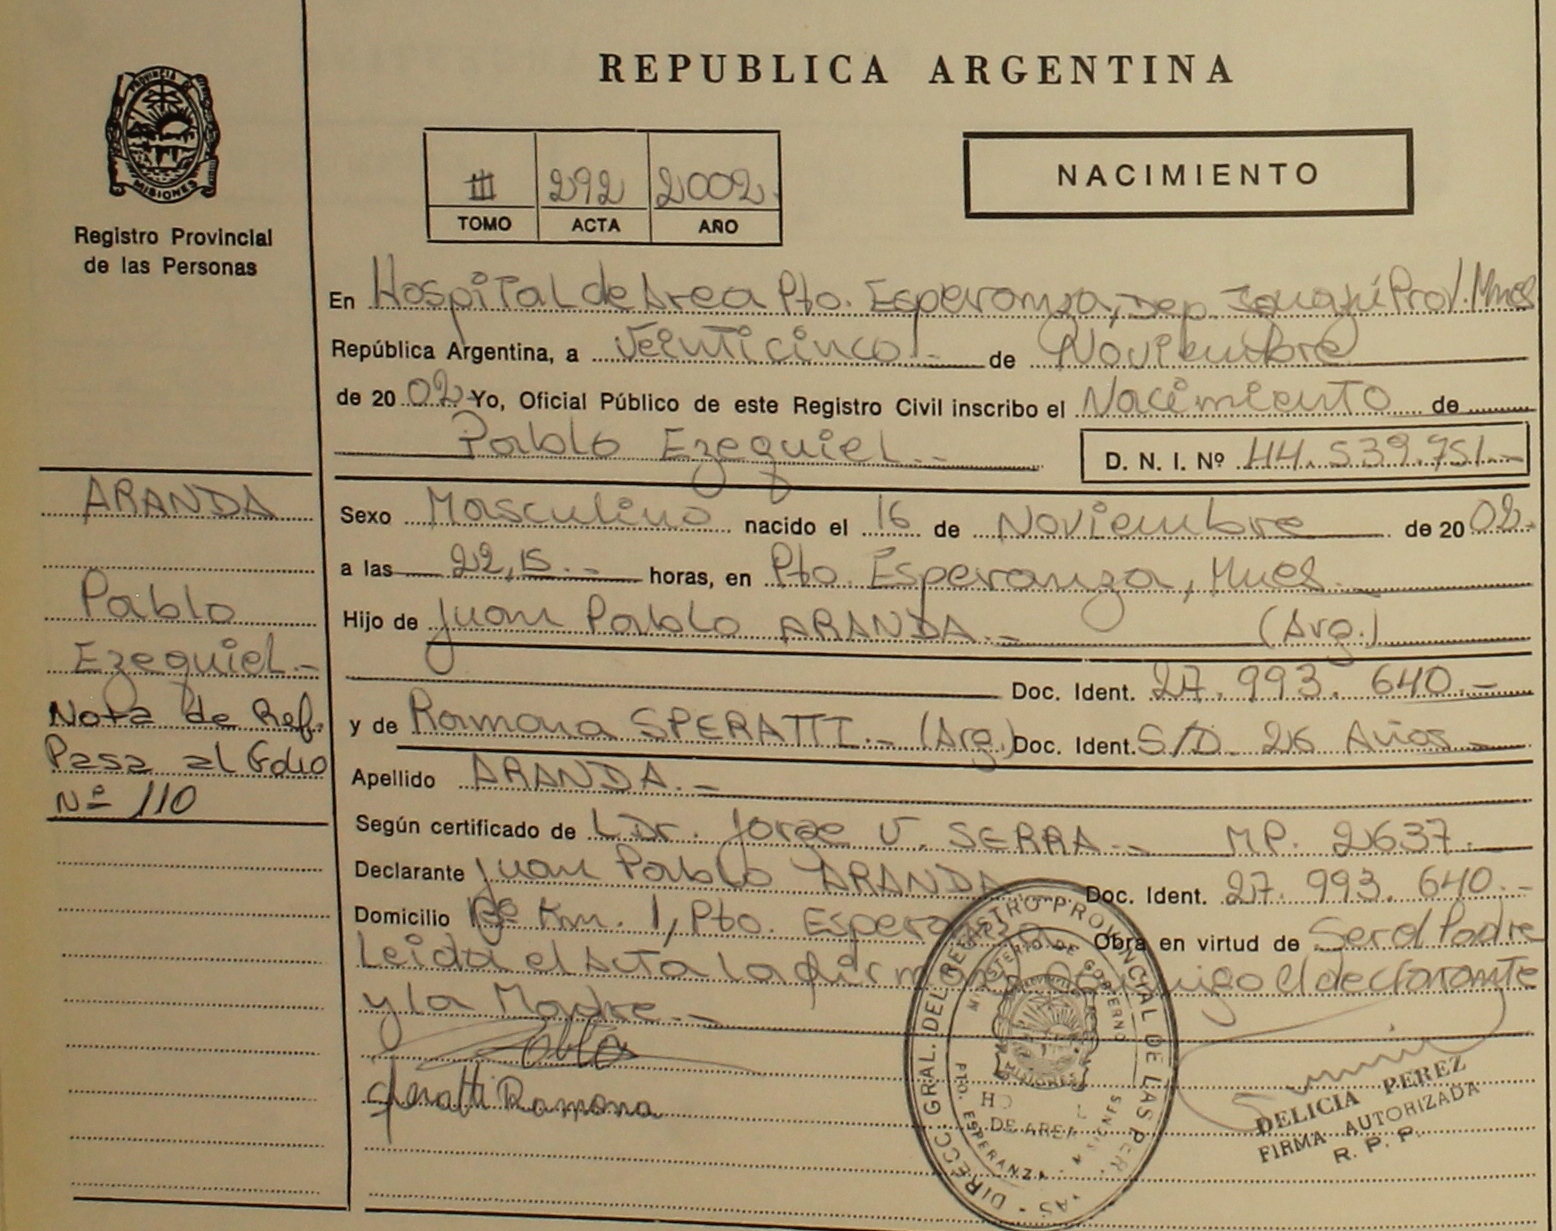 REPUBLICA ARGENTINA
PROVINCIA DE
MISIONES
Registro Provincial
de las Personas
III 292 2002.
TOMO ACTA AÑO
NACIMIENTO
En Hospital de Area Pto. Esperanza, Dep. Iguazú Prov. Mnes
República Argentina, a Veinticinco.- de Noviembre
de 2002- Yo, Oficial Público de este Registro Civil inscribo el Nacimiento de
Pablo Ezequiel.-
D. N. I. Nº 44.539.751.-
Sexo Masculino nacido el 16 de Noviembre de 2002.
a las 22,15.- horas, en Pto. Esperanza, Mnes.
Hijo de Juan Pablo ARANDA.- (Arg.)
Doc. Ident. 27.993.640.-
y de Ramona SPERATTI.- (Arg.) Doc. Ident. S/D. 26 Años-
Apellido ARANDA.-
Según certificado de Dr. Jorge V. SERRA.- MP. 2637.-
Declarante Juan Pablo ARANDA Doc. Ident. 27.993.640.-
Domicilio Bº Km. 1, Pto. Esperanza Obra en virtud de Ser el Padre
Leida el Acta la firman conmigo el declarante
y la Madre.-
Speratti Ramona
ARANDA
Pablo
Ezequiel.-
Nota de Ref.
Pasa al Folio
Nº 110
DIRECC. GRAL. DEL REGISTRO PROVINCIAL DE LAS PER AS
MINISTERIO DE GOBIERNO
MISIONES
DE AREA
PTO. ESPERANZA - MISIONES
DELICIA PEREZ
FIRMA AUTORIZADA
R. P. P.